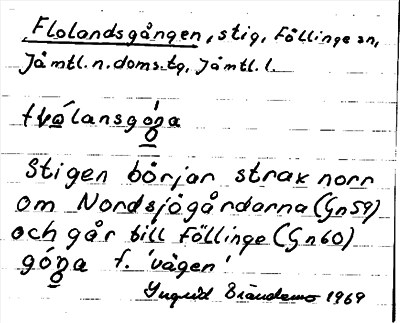 Flolandsgången, stig, Föllinge sn,
Jämtl. n. doms. tg, Jämtl. l.
Stigen börjar strax norr
om Nordsjögårdarna (Gn59)
och går till Föllinge (Gn60)
góŋa f. 'vägen'
Ingrid 1969